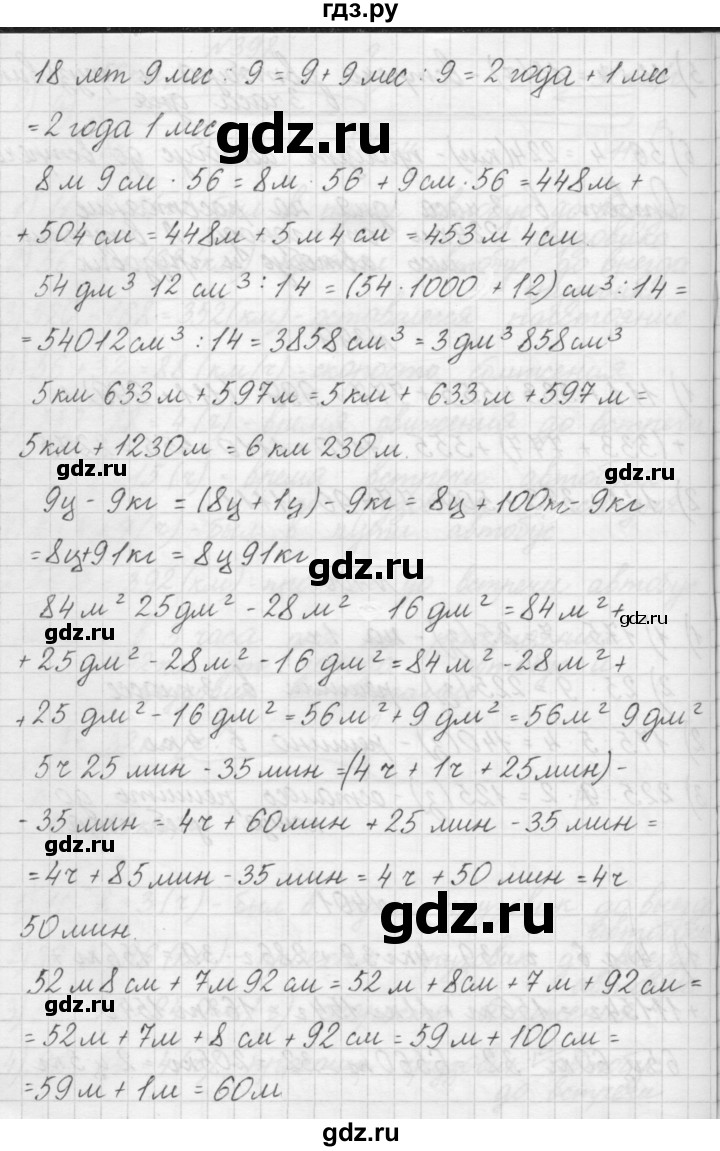 гдз.ру
18 лет 9 мес : 9 = 9 + 9 мес : 9 = 2 года + 1 мес
= 2 года 1 мес
gdz.ru
8 м 9 см · 56 = 8 м · 56 + 9 см · 56 = 448 м +
+ 504 см = 448 м + 5 м 4 см = 453 м 4 см
54 дм³ 12 см³ : 14 = (54 · 1000 + 12) см³ : 14 =
= 54012 см³ : 14 = 3858 см³ = 3 дм³ 858 см³
5 км 633 м + 597 м = 5 км + 633 м + 597 м =
5 км + 1230 м = 6 км 230 м.
gdz.ru
gdz.ru
9 ц - 9 кг = (8 ц + 1 ц) - 9 кг = 8 ц + 100 - 9 кг
= 8 ц + 91 кг = 8 ц 91 кг
gdz.ru
84 м² 25 дм² - 28 м² 16 дм² = 84 м² +
gdz.ru
gdz.ru
+ 25 дм² - 28 м² - 16 дм² = 84 м² - 28 м² +
+ 25 дм² - 16 дм² = 56 м² + 9 дм² = 56 м² 9 дм²
5 ч 25 мин - 35 мин = (4 ч + 1 ч + 25 мин) -
- 35 мин = 4 ч + 60 мин + 25 мин - 35 мин =
gdz.ru
= 4 ч + 85 мин - 35 мин = 4 ч + 50 мин = 4 ч
50 мин.
gdz.ru
52 м 8 см + 7 м 92 см = 52 м + 8 см + 7 м + 92 см =
gdz.ru
= 52 м + 7 м + 8 см + 92 см = 59 м + 100 см =
= 59 м + 1 м = 60 м
gdz.ru